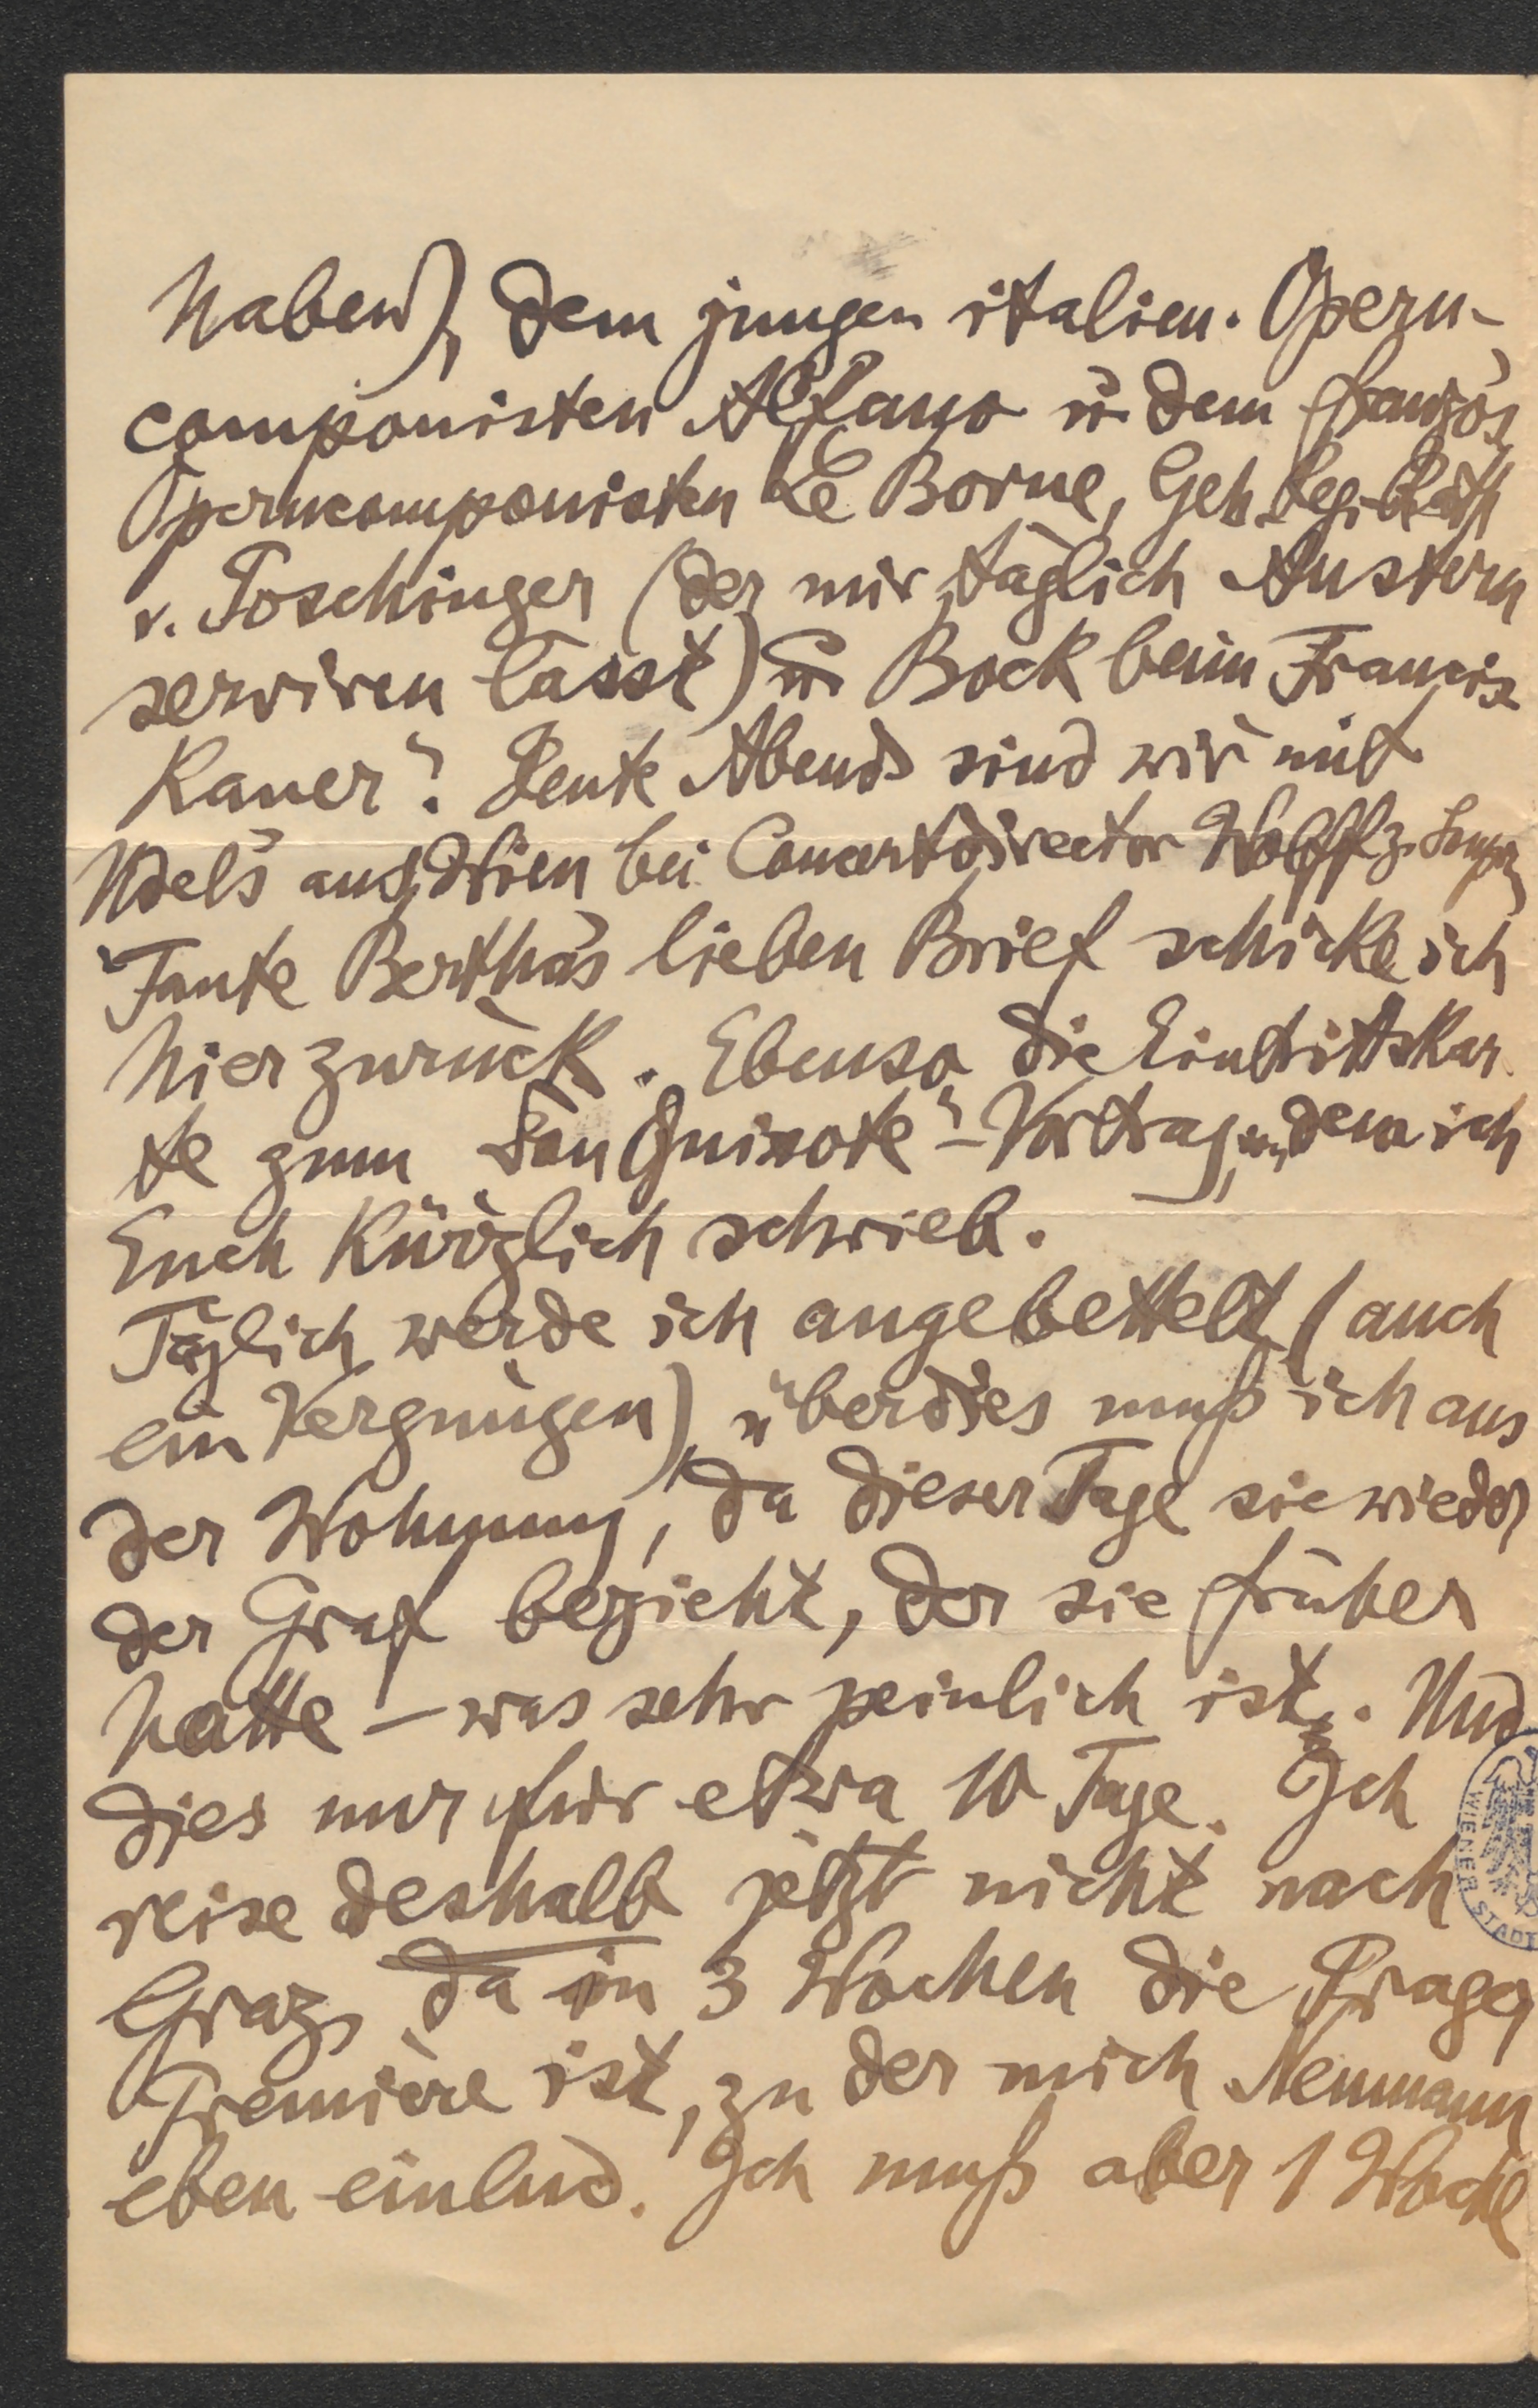 haben), dem jungen italien. Opern-
componisten Alfano u dem französ
Operncomponisten Le Borne, Geh Reg. Rath
v. Poschinger (der mir täglich Austern
serviren lässt) u Bock beim Francis
Kaner? Heute Abend sind wir mit
Udel's aus Wien bei Concertdirector Wolff z.
Tante Bertha's lieben Brief schicke ich
hier zurück. Ebenso die Eintrittskar
te zum Don Quixote-Vortrag, dem ich
Euch kürzlich schrieb.
Täglich werde ich angebettelt (auch
ein Vergnügen), überdies muß ich aus
der Wohnung, da dieser Tage sie wieder
der Graf bezieht, der sie früher
hatte – was sehr peinlich ist. Und
dies nur für etwa 10 Tage. Ich
reise deshalb jetzt nicht nach
Graz, da in 3 Wochen die Prager
Première ist, zu der mich Neumann
eben einlud. Ich muß aber 1 Woche
WIENER STADT